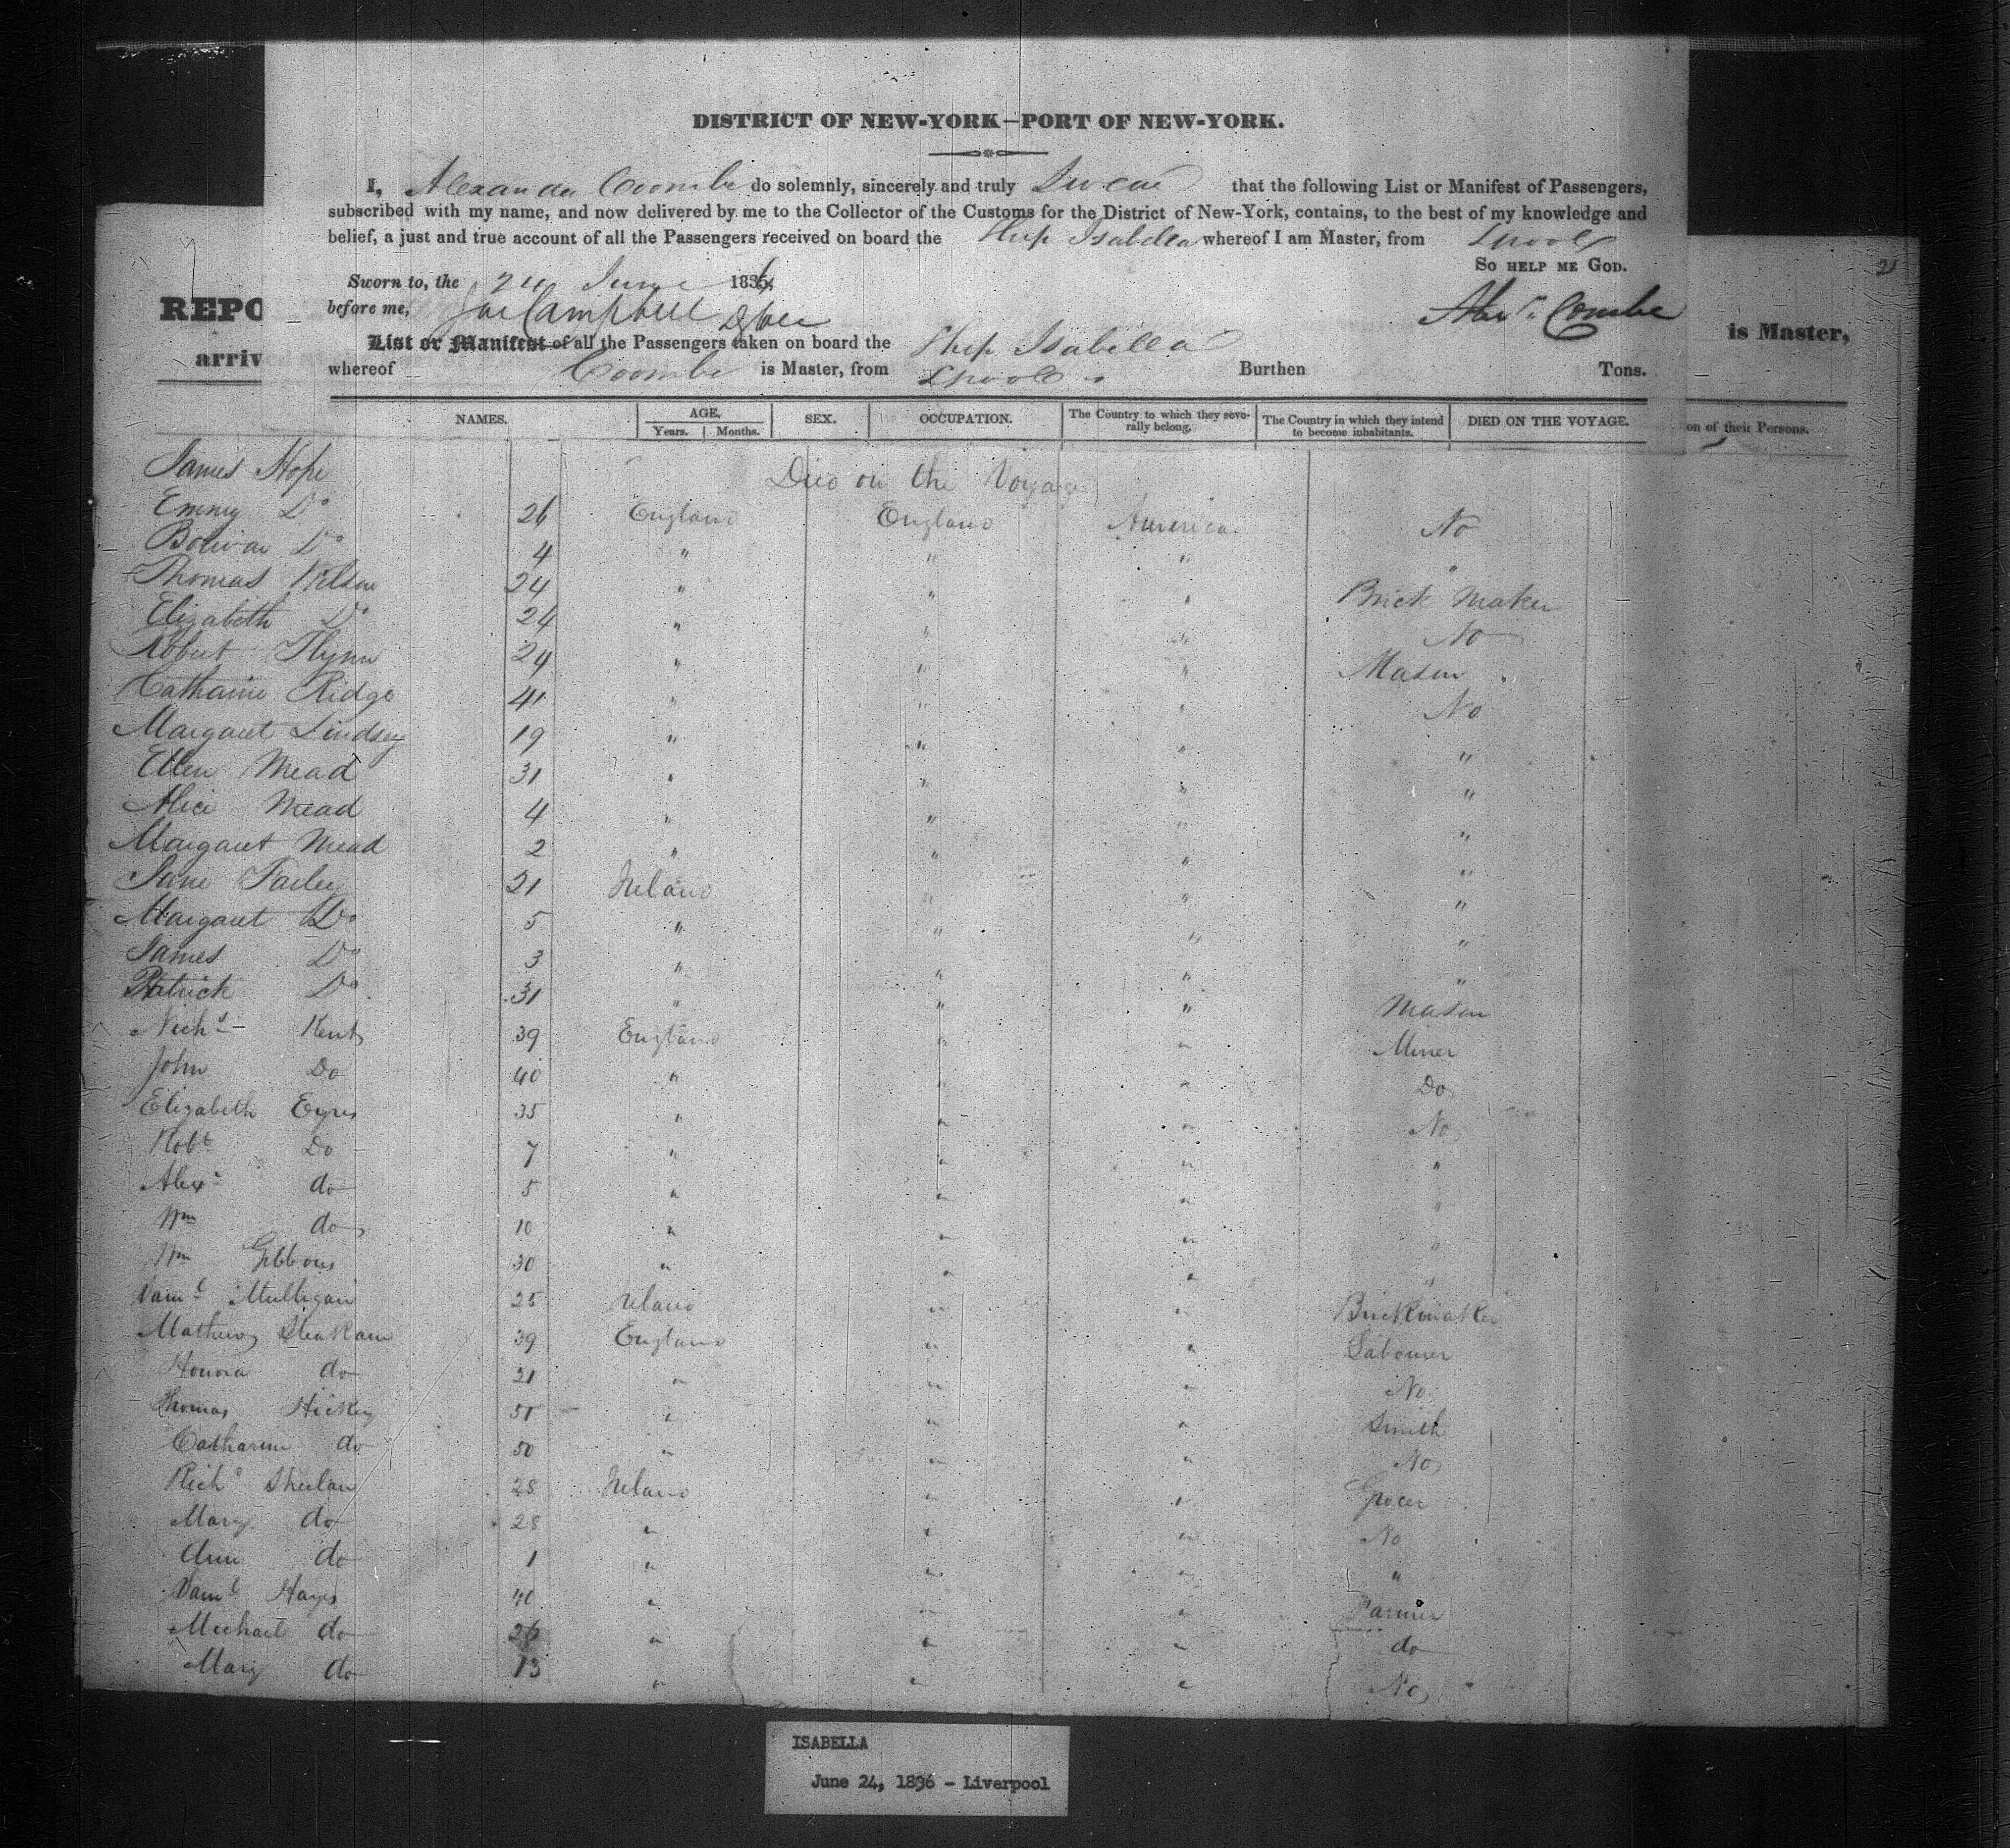 DISTRICT OF NEW-YORK—PORT OF NEW-YORK.
I, Alexander Coombe do solemnly, sincerely and truly Swear that the following List or Manifest of Passengers,
subscribed with my name, and now delivered by me to the Collector of the Customs for the District of New-York, contains, to the best of my knowledge and
belief, a just and true account of all the Passengers received on board the Ship Isabella whereof I am Master, from Lpool
So help me God.
Sworn to, the 24 June 1836
before me, Campbell
List or Manifest of all the Passengers taken on board the Ship Isabella
whereof Coombe is Master, from Lpool Burthen Tons.
REPO
arriv
is Master,
21
NAMES. AGE. Years. Months. SEX. OCCUPATION. The Country to which they severally belong. The Country in which they intend to become inhabitants. DIED ON THE VOYAGE.
on of their Persons.
James Hope Died on the Voyage
Emmy Do 26 England England America No
Bolivar Do 4 " " " "
Thomas Wilson 24 " " " Brick Maker
Elizabeth Do 24 " " " No
Robert Flynn 24 " " " Mason
Catharine Ridge 41 " " " No
Margaret Lindsey 19 " " " "
Ellen Mead 31 " " " "
Alice Mead 4 " " " "
Margaret Mead 2 " " " "
Jane Farley 21 Ireland " " "
Margaret Do 5 " " " "
James Do 3 " " " "
Patrick Do 31 " " " Mason
Nichs Kent 39 England " " Miner
John Do 40 " " " Do
Elizabeth Eyres 35 " " " No
Robt Do 7 " " " "
Alexr do 5 " " " "
Wm do 10 " " " "
Wm Gibbons 30 " " " "
Saml Mulligan 25 Ireland " " Brickmaker
Mathew 39 England " " Labourer
Honora do 21 " " " No
Thomas Hickey 51 " " " Smith
Catharine do 50 " " " No
Richd Sheelan 28 Ireland " " Grocer
Mary do 28 " " " No
Ann do 1 " " " "
Saml Hayes 40 " " " Farmer
Michael do 26 " " " do
Mary do 13 " " " No
ISABELLA
June 24, 1836 - Liverpool